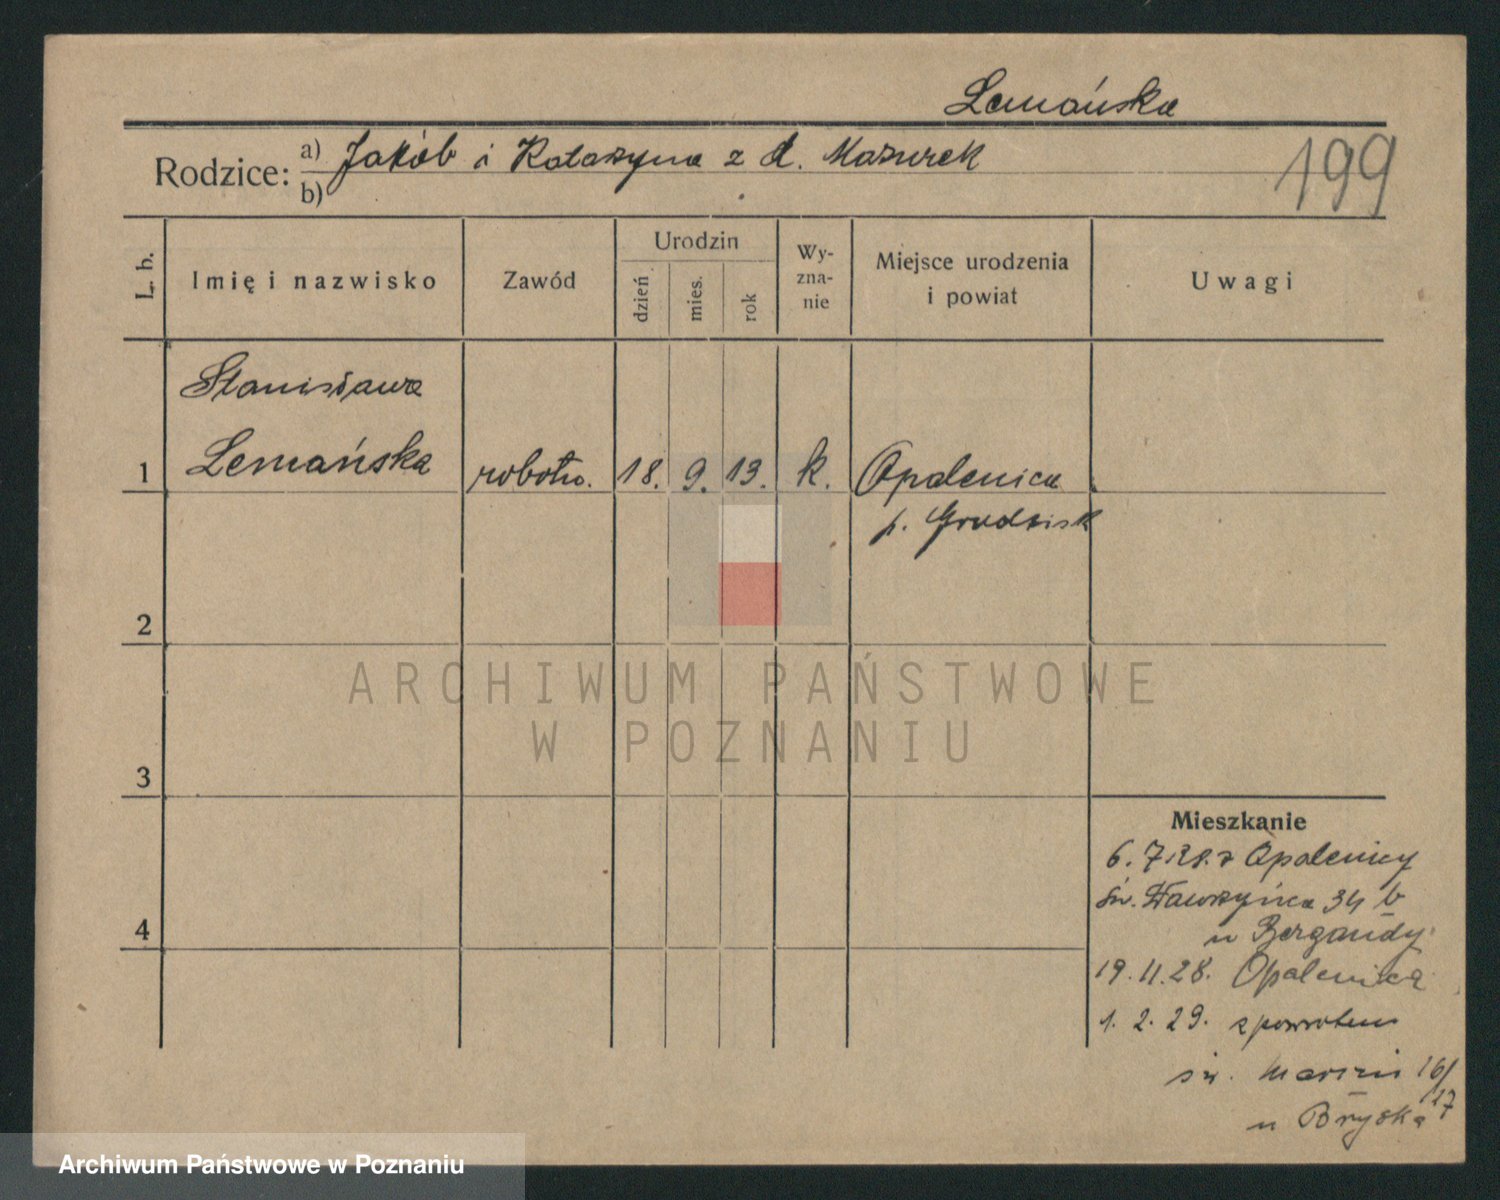 Lemańska
Rodzice: a) Jakób i Katarzyna z d. Mazurek
b)
199
L. b.
Imię i nazwisko
Zawód
Urodzin
dzień
mies.
rok
Wy-
zna-
nie
Miejsce urodzenia
i powiat
Uwagi
Stanisława
1 Lemańska robotn. 18. 9. 13. k. Opalenica
p. Grodzisk
2
ARCHIWUM PAŃSTWOWE
W POZNANIU
3
Mieszkanie
6. 7 28. z Opalenicy
św. Wawrzyńca 34 b
u Bergandy.
4
19. 11. 28. Opalenica
1. 2. 29. zpowrotem
św. Marcin 16/17
u Bryska
Archiwum Państwowe w Poznaniu